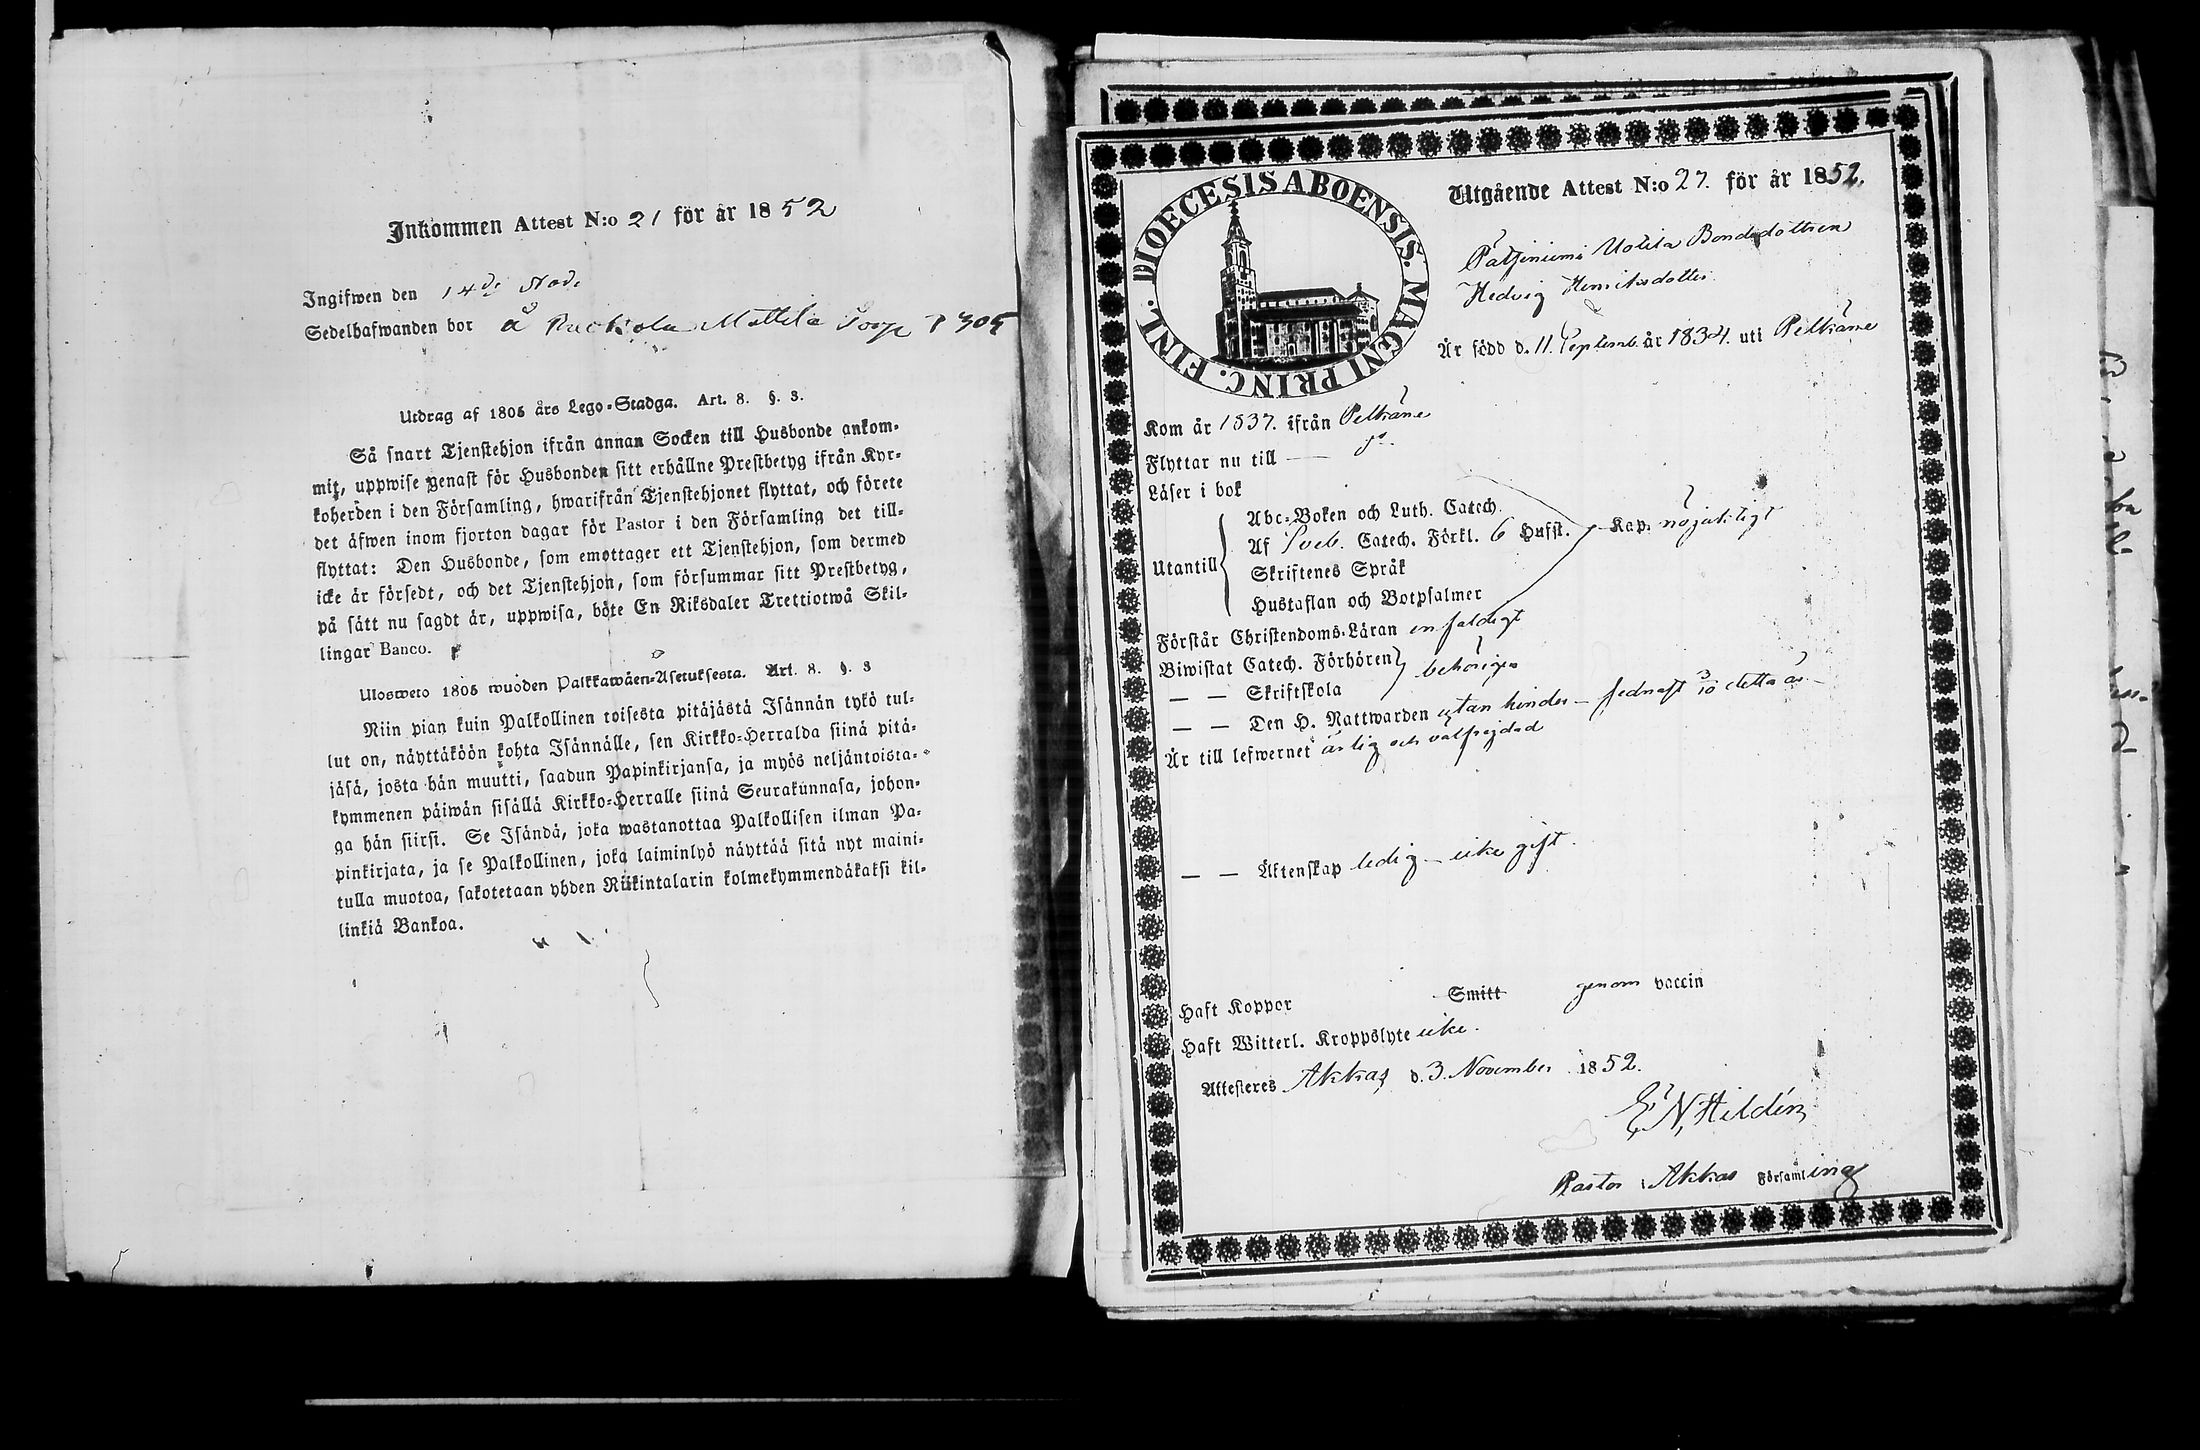 Inkommen Attest N:o 21 för år 1852
Ingifwen den 14de Nov.
Sedelhafwanden bor å Mattila Torp P 305
Utdrag af 1805 års Lego-Stadga. Art. 8. §. 3.
Så snart Tjenstehjon ifrån annan Socken till Husbonde ankom-
mit, uppwise genast för Husbonden sitt erhållne Prestbetyg ifrån Kyr-
koherden i den Församling, hwarifrån Tjenstehjonet flyttat, och förete
det äfwen inom fjorton dagar för Pastor i den Församling det till-
flyttat: Den Husbonde, som emottager ett Tjenstehjon, som dermed
icke är försedt, och det Tjenstehjon, som försummar sitt Prestbetyg,
på sätt nu sagdt är, uppwisa, böte En Riksdaler Trettiotwå Skil-
lingar Banco.
Ulosweto 1805 wuoden Palkkawäen-Asetuksesta. Art. 8. §. 3
Niin pian kuin Palkollinen toisesta pitäjästä Isännän tykö tul-
lut on, näyttäköön kohta Isännälle, sen Kirkko-Herralda siinä pitä-
jäsä, josta hän muutti, saadun Papinkirjansa, ja myös neljäntoista-
kymmenen päiwän sisällä Kirkko-Herralle siinä Seurakunnasa, johon-
ga hän siirsi. Se Isändä, joka wastanottaa Palkollisen ilman Pa-
pinkirjata, ja se Palkollinen, joka laiminlyö näyttää sitä nyt maini-
tulla muotoa, sakotetaan yhden Riikintalarin kolmekymmendäkaksi kil-
linkiä Bankoa.
DIOECESIS ABOENSIS. MAGNI PRINC. FINL.
Utgående Attest N:o 27. för år 1852.
Uotila Bondedottren
Hedvig Henriksdotter
Är född d. 11. Septemb. år 1834. uti Pelkäne
Kom år 1837. ifrån Pelkäne
Flyttar nu till —
Läser i bok
Utantill
Abc-Boken och Luth. Catech.
Af Sveb. Catech. Förkl. 6 Hufst. Kap. nöjaktigt
Skriftenes Språk
Hustaflan och Botpsalmer
Förstår Christendoms-Läran enfaldigt
Biwistat Catech. Förhören behörigen
— — Skriftskola
— — Den H. Nattwarden utan hinder – sednast 3/10 detta år –
Är till lefwernet ärlig och välfrejdad
— — Äktenskap ledig – icke gift.
Haft Koppor Smitt genom vaccin
Haft Witterl. Kroppslyte icke.
Attesteres Akkas d. 3. November 1852.
E N Hildén
Pastor i Akkas Församling